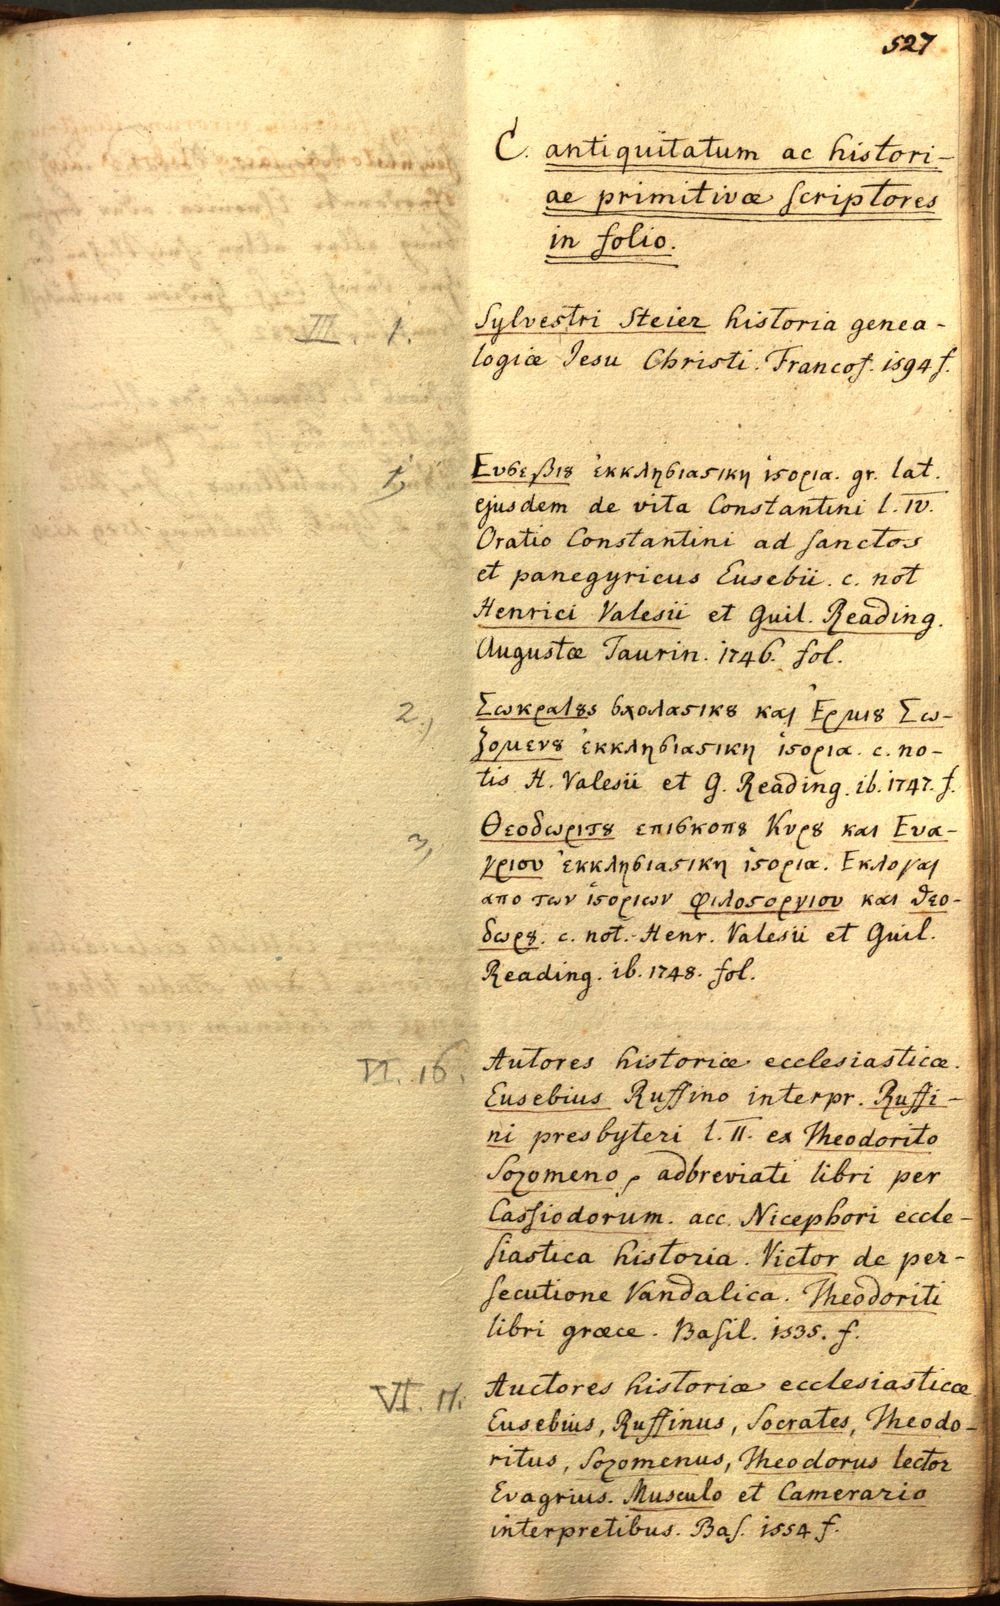 527
C. antiquitatum ac histori-
ae primitivæ scriptores
in folio.
III. 1. Sylvestri Steier historia genea-
logiæ Jesu Christi. Francof. 1594 f.
1, Ευσεβιȣ ἐκκλησιαστικη ἱστορια. gr. lat.
ejusdem de vita Constantini l. IV.
Oratio Constantini ad sanctos
et panegyricus Eusebii. c. not
Henrici Valesii et Guil. Reading.
Augustæ Taurin. 1746. fol.
2, Σωκρατȣς σχολαστικȣ και Ἑρμιȣ Σω-
ζομενȣ ἐκκλησιαστικη ἱστορια. c. no-
tis H. Valesii et G. Reading. ib. 1747. f.
3, Θεοδωριτȣ επισκοπȣ Κυρȣ και Ευα-
γριου ἐκκλησιαστικη ἱστορια. Εκλογαι
απο των ἱστοριων φιλοστοργιου και θεο-
δωρȣ. c. not. Henr. Valesii et Guil.
Reading. ib. 1748. fol.
VI. 16. Autores historiæ ecclesiasticæ.
Eusebius Ruffino interpr. Ruffi-
ni presbyteri l. II. ex Theodorito
Sozomeno, adbreviati libri per
Cassiodorum. acc. Nicephori eccle-
siastica historia. Victor de per-
secutione Vandalica. Theodoriti
libri græce. Basil. 1535. f.
VI. 17. Auctores historiæ ecclesiasticæ
Eusebius, Ruffinus, Socrates, Theodo-
ritus, Sozomenus, Theodorus lector
Evagrius. Musculo et Camerario
interpretibus. Bas. 1554 f.